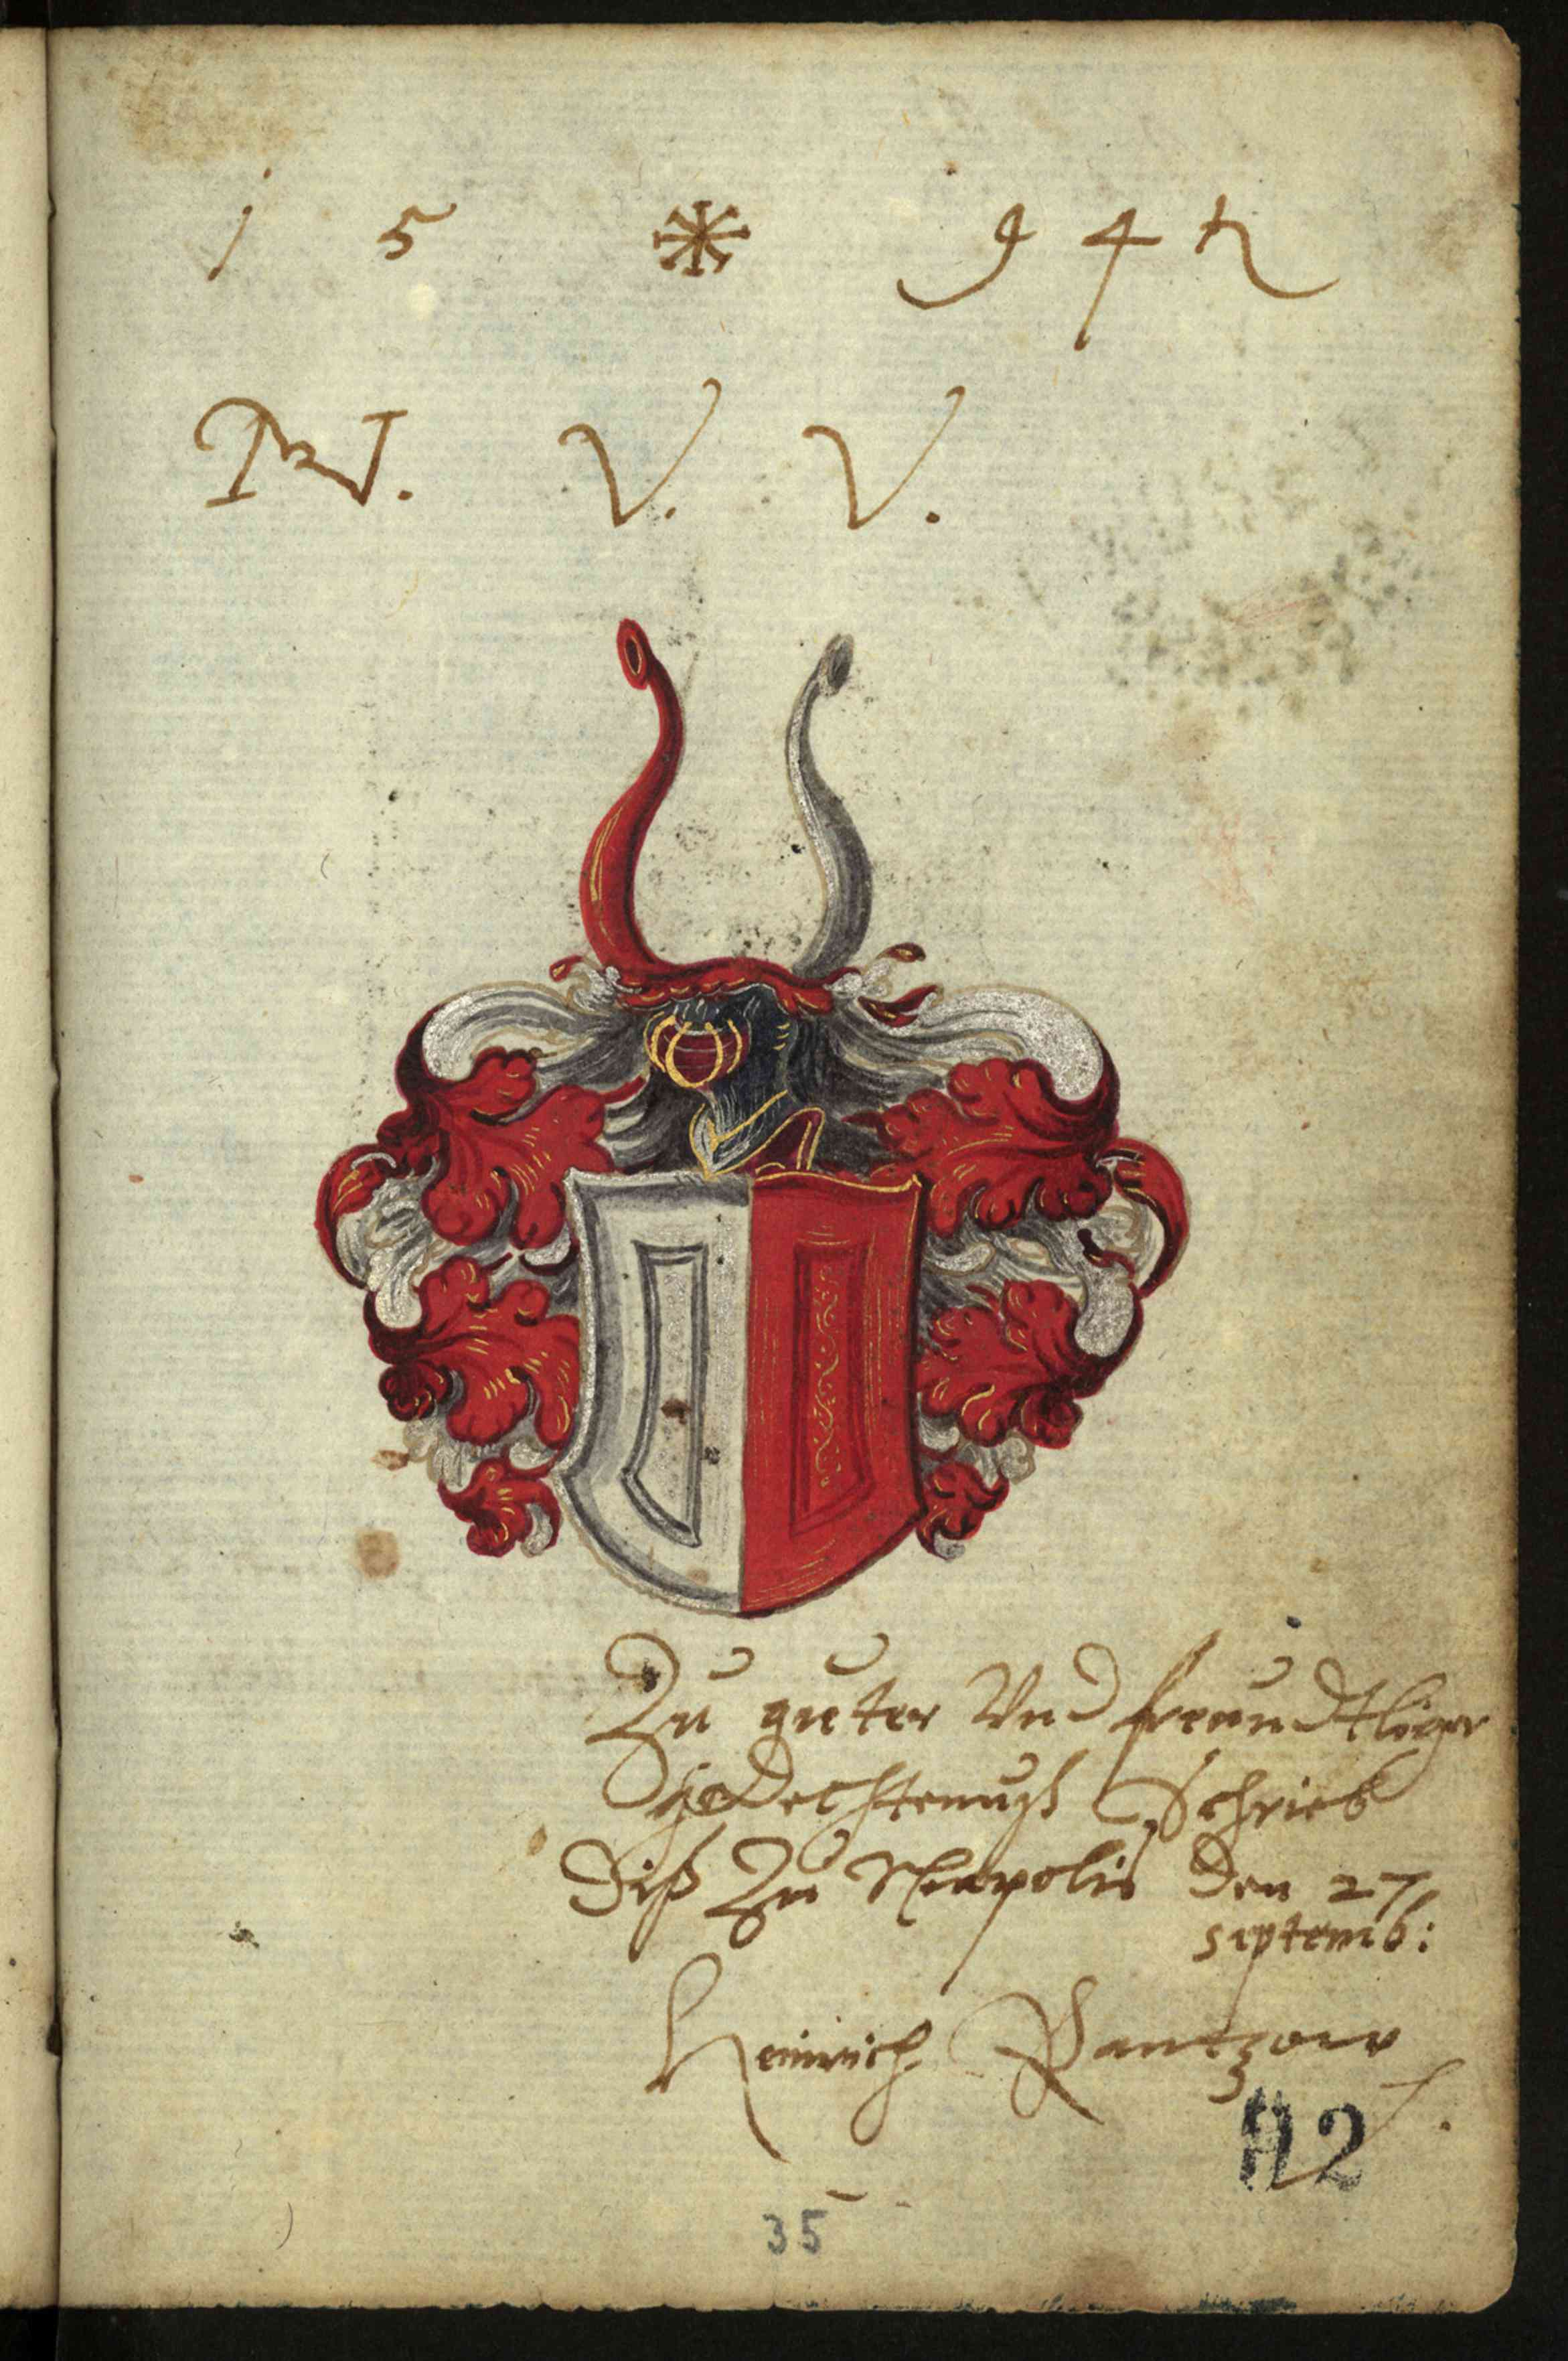 15 * 94
V. V.
Zu guter Vnd freundtliger
gedechtenuß Schrieb
diß Zu Neapolis den 27
septemb:
Heinrich Rantzow
35